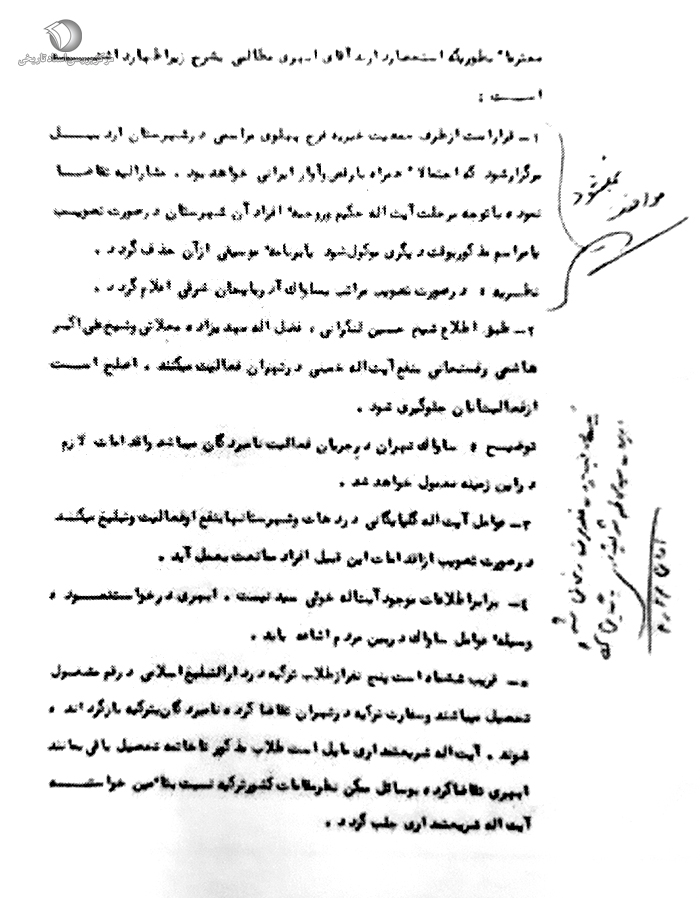 مرکز بررسی اسناد تاریخی
محترما" بطوریکه استحضار دارند آقای ابهری مطالبی بشرح زیر اظهار داشته
است :
۱ـ قرار است از طرف جمعیت خیریه فرح پهلوی مراسمی در شهرستان اردبیل
برگزار شود که احتمالا" همراه با رقص و آواز ایرانی خواهد بود . مشارالیه تقاضا
نموده با توجه برحلت آیت اله حکیم و روحیه افراد آن شهرستان در صورت تصویب
یا مراسم مذکور بوقت دیگری موکول شود یا برنامه موسیقی از آن حذف گردد .
نظریه : در صورت تصویب مراتب بساواک آذربایجان شرقی اعلام گردد .
۲ـ طبق اطلاع شیخ حسین لنکرانی ، فضل اله مهدیزاده محلاتی و شیخ علی اکبر
هاشمی رفسنجانی بنفع آیت اله خمینی در تهران فعالیت میکنند . اصلح است
از فعالیت آنان جلوگیری شود .
توضیح : ساواک تهران در جریان فعالیت نامبردگان میباشد و اقدامات لازم
در این زمینه معمول خواهد شد .
۳ـ عوامل آیت اله گلپایگانی در دهات و شهرستانها بنفع او فعالیت و تبلیغ میکنند
در صورت تصویب از اقدامات این قبیل افراد ممانعت بعمل آید .
۴ـ برابر اطلاعات موجود آیت اله خوئی سید نیست . ابهری درخواست نمود
وسیله عوامل ساواک در بین مردم اشاعه یابد .
۵ـ قریب ششماه است پنج نفر از طلاب ترکیه در دارالتبلیغ اسلامی در قم مشغول
تحصیل میباشند و سفارت ترکیه در تهران تقاضا کرده نامبردگان بترکیه بازگردانده
شوند . آیت اله شریعتمداری مایل است طلاب مذکور تا خاتمه تحصیل باقی بمانند
ابهری تقاضا کرده بوسائل ممکن نظر مقامات کشور ترکیه نسبت بتامین خواسته
آیت اله شریعتمداری جلب گردد .